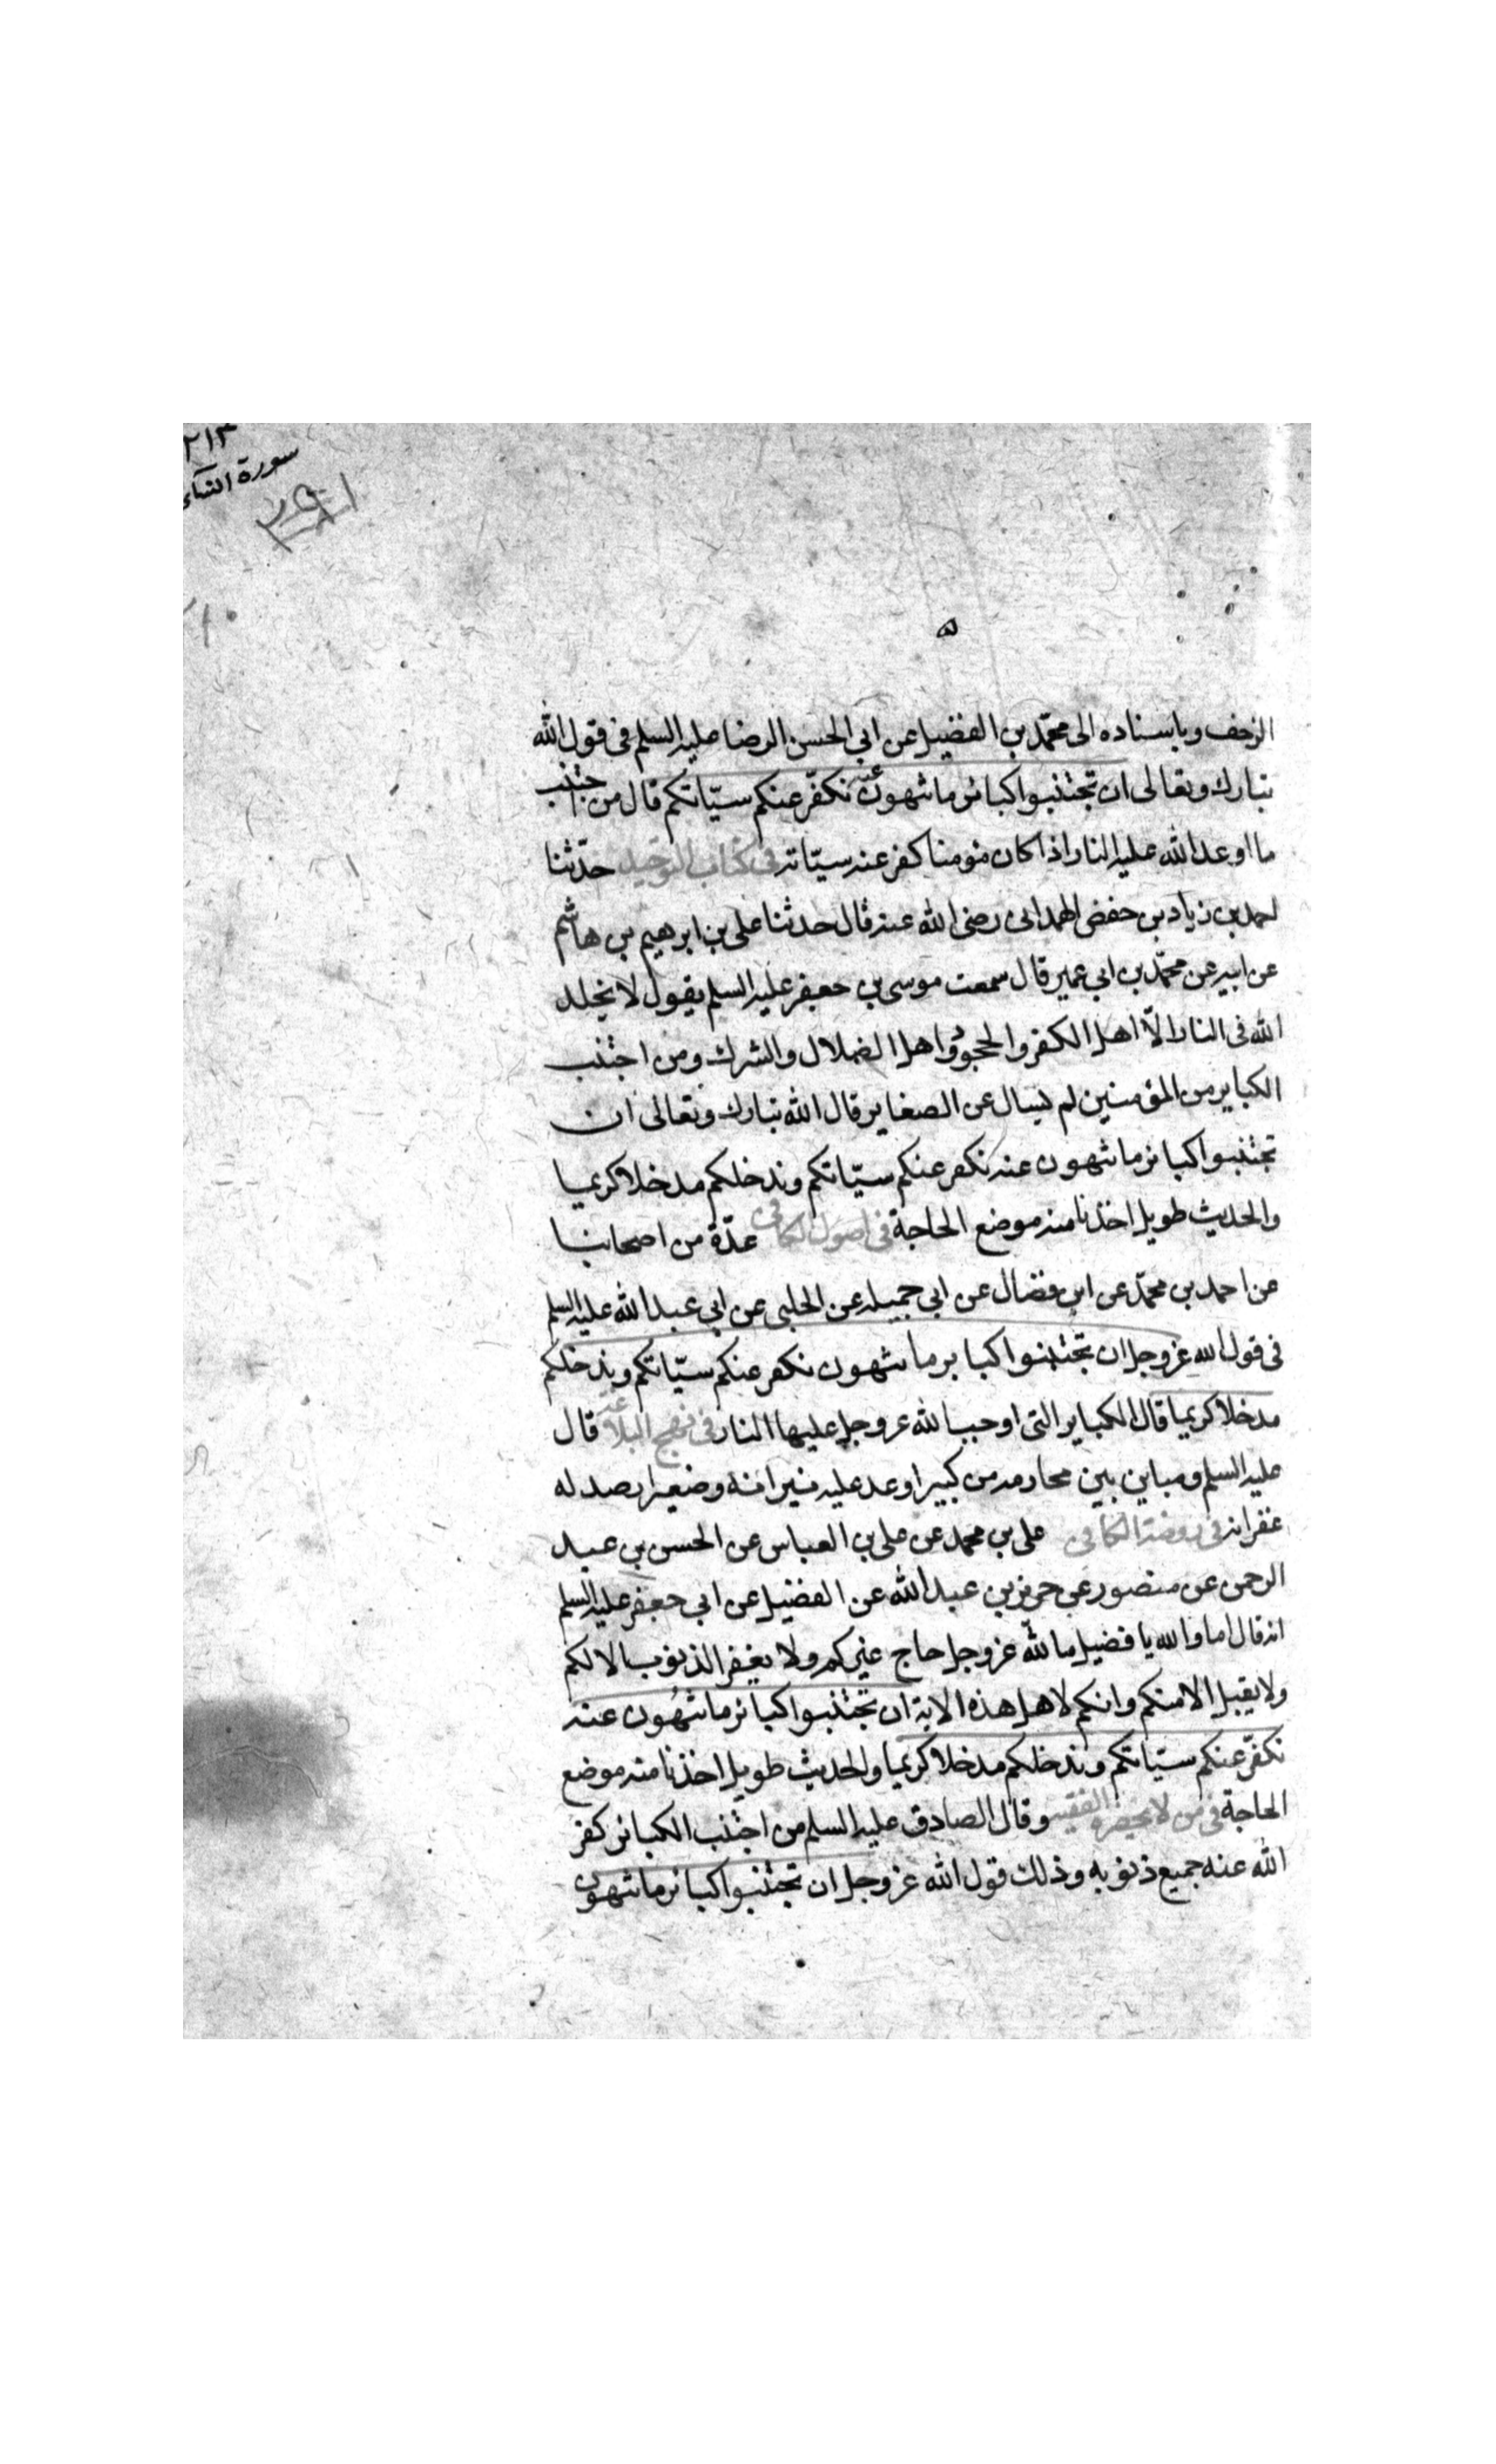 ٢١٣
سورة النسآء
الزحف وباسناده الى محمّد بن الفضيل عن ابي الحسن الرضا عليه السلم في قول الله
تبارك وتعالى ان تجتنبوا كبائر ما تنهون عنه نكفّر عنكم سيّاتكم قال من اجتنب
ما اوعد الله عليه النار اذا كان مؤمنا كفر عنه سيّاته في كتاب التوحيد حدّثنا
احمد بن زياد بن حفض الهمدانى رضى الله عنه قال حدثنا على بن ابرهيم بن هاشم
عن ابيه عن محمّد بن ابي عمير قال سمعت موسى بن جعفر عليه السلم يقول لا يخلد
الله في النار الّا اهل الكفر والجحود واهل الضلال والشرك ومن اجتنب
الكباير من المؤمنين لم يسال عن الصغاير قال الله تبارك وتعالى ان
تجتنبوا كبائر ما تنهون عنه نكفر عنكم سيّاتكم وندخلكم مدخلا كريما
والحديث طويل اخذنا منه موضع الحاجة في اصول الكافى عدّة من اصحابنا
عن احمد بن محمّد عن ابن فضال عن ابي جميله عن الحلبى عن ابي عبد الله عليه السلم
في قول الله عزوجل ان تجتنبوا كباير ما تنهون نكفر عنكم سيّاتكم وندخلكم
مدخلا كريما قال الكباير التى اوجب الله عزوجل عليها النار في نهج البلاغه قال
عليه السلم ومباين بين محارمه من كبير اوعد عليه نيرانه وصغير ارصد له
غفرانه في روضة الكافى على بن محمد عن على بن العباس عن الحسن بن عبد
الرحمن عن منصور عن حريز بن عبد الله عن الفضيل عن ابي جعفر عليه السلم
انه قال اما والله يا فضيل ما لله عزوجل حاج غيركم ولا يغفر الذنوب الا لكم
ولا يقبل الا منكم وانكم لاهل هذه الاية ان تجتنبوا كبائر ما تنهون عنه
نكفّر عنكم سيّاتكم وندخلكم مدخلا كريما والحديث طويل اخذنا منه موضع
الحاجة في من لا يحضره الفقيه وقال الصادق عليه السلم من اجتنب الكبائر كفر
الله عنه جميع ذنوبه وذلك قول الله عزوجل ان تجتنبوا كبائر ما تنهون